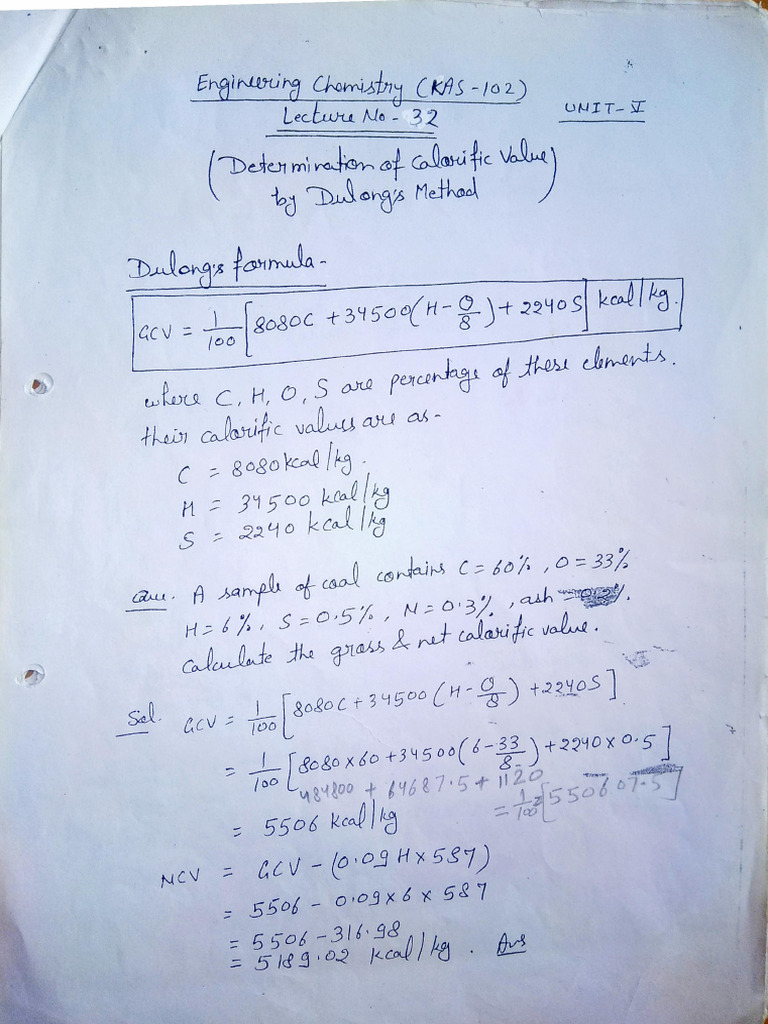 Engineering Chemistry (KAS-102)
Lecture No - 32
UNIT-V
(Determination of Calorific Value)
by Dulong's Method
Dulong's formula-
GCV = 1/100 [8080C + 34500(H - O/8) + 2240S] kcal/kg.
where C, H, O, S are percentage of these elements.
their calorific values are as-
C = 8080 kcal/kg.
H = 34500 kcal/kg
S = 2240 kcal/kg
Que. A sample of coal contains C = 60%, O = 33%
H = 6%, S = 0.5%, N = 0.3%, ash = %.
Calculate the gross & net calorific value.
Sol. GCV = 1/100 [8080C + 34500 (H - O/8) + 2240S]
= 1/100 [8080×60 + 34500(6 - 33/8) + 2240×0.5]
484800 + 64687.5 + 1120
= 1/100 [550607.5]
= 5506 kcal/kg
NCV = GCV - (0.09H × 587)
= 5506 - 0.09×6 × 587
= 5506 - 316.98
= 5189.02 kcal/kg. Ans